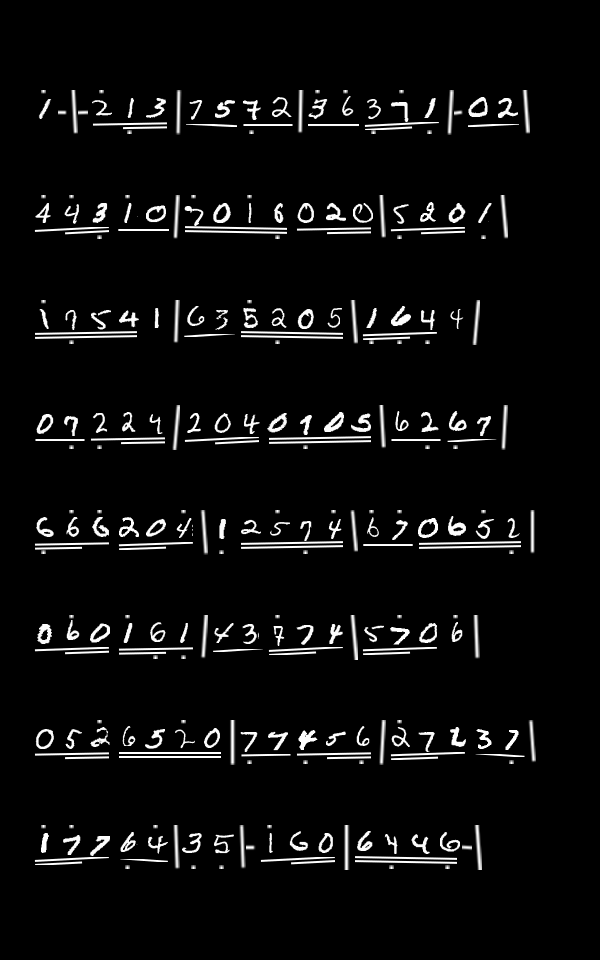 1-|-213|7572|36371|-02|
44310|7016020|5201|
17541|635205|1644|
07224|2040105|6267|
666204|12574|670652|
060161|43774|5706|
0526520|77456|27237|
17764|35|-160|6446-|